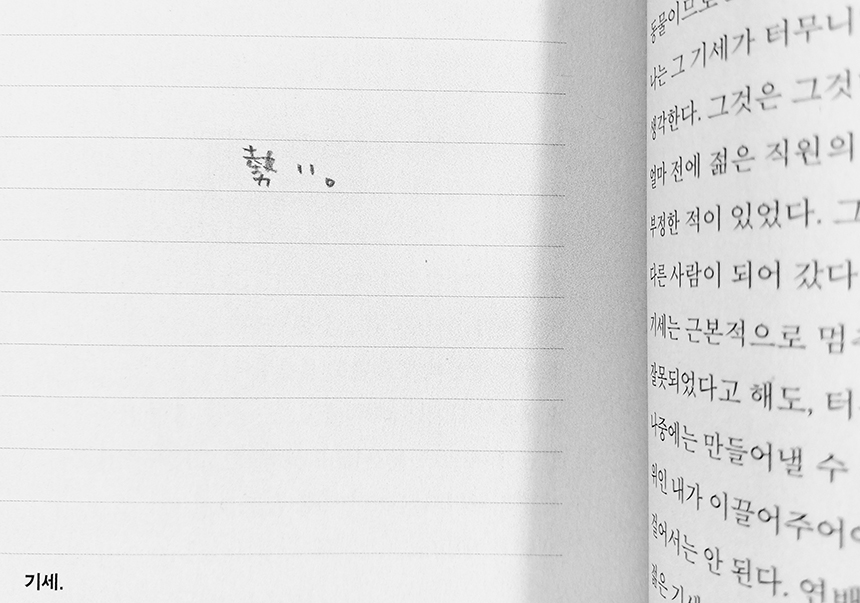 勢 〃。
기세.
동물이므로
나는 그 기세가 터무니
생각한다. 그것은 그것
얼마 전에 젊은 직원의
부정한 적이 있었다. 그
다른 사람이 되어 갔다
기세는 근본적으로 멈추
잘못되었다고 해도, 터
나중에는 만들어낼 수
위인 내가 이끌어주어야
걸어서는 안 된다.
젊은 기세